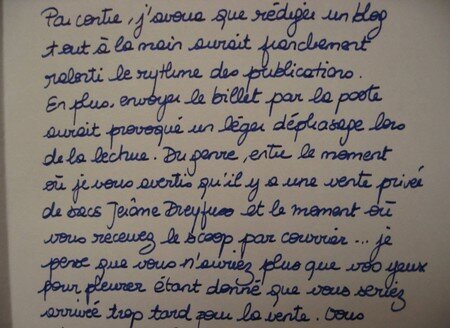 Par contre, j'avoue que rédiger un blog
tout à la main aurait franchement
ralenti le rythme des publications.
En plus, envoyer le billet par la poste
aurait provoqué un léger déphasage lors
de la lecture. Du genre, entre le moment
où je vous avertis qu'il y a une vente privée
de sacs Jerôme Dreyfuss et le moment où
vous recevez le scoop par courrier... je
pense que vous n'auriez plus que vos yeux
pour pleurer étant donné que vous seriez
arrivée trop tard pour la vente. Vous